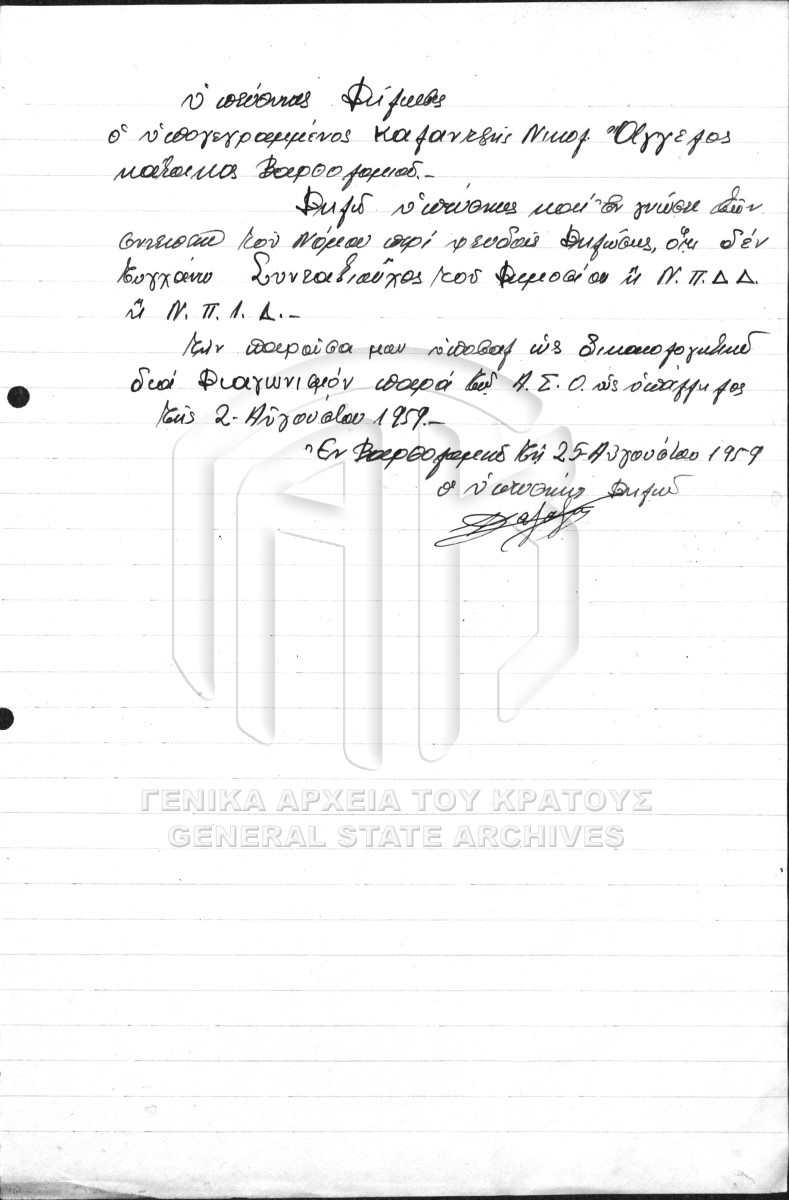 Ὑπεύθυνος Δήλωσις
Ὁ ὑπογεγραμμένος Καζαντζῆς Νικολ. Ἄγγελος
κάτοικος Βαρθολομιοῦ.-
Δηλῶ ὑπευθύνως καί ἐν γνώσει τῶν
συνεπειῶν τοῦ Νόμου περί ψευδοῦς Δηλώσεως, ὅτι δέν
τυγχάνω Συνταξιοῦχος τοῦ Δημοσίου ἤ Ν.Π.Δ.Δ.
ἤ Ν.Π.Ι.Δ.-
Τήν παροῦσα μου ὑποβάλ ὡς δικαιολογητικό
διά Διαγωνισμόν παρά τοῦ Α.Σ.Ο. ὡς ὑπάλληλος
τῆς 2-Αὐγούστου 1959.-
Ἐν Βαρθολομιῷ τῇ 25-Αὐγούστου 1959
Ὁ ὑπευθύνως Δηλῶν
ΓΕΝΙΚΑ ΑΡΧΕΙΑ ΤΟΥ ΚΡΑΤΟΥΣ
GENERAL STATE ARCHIVES